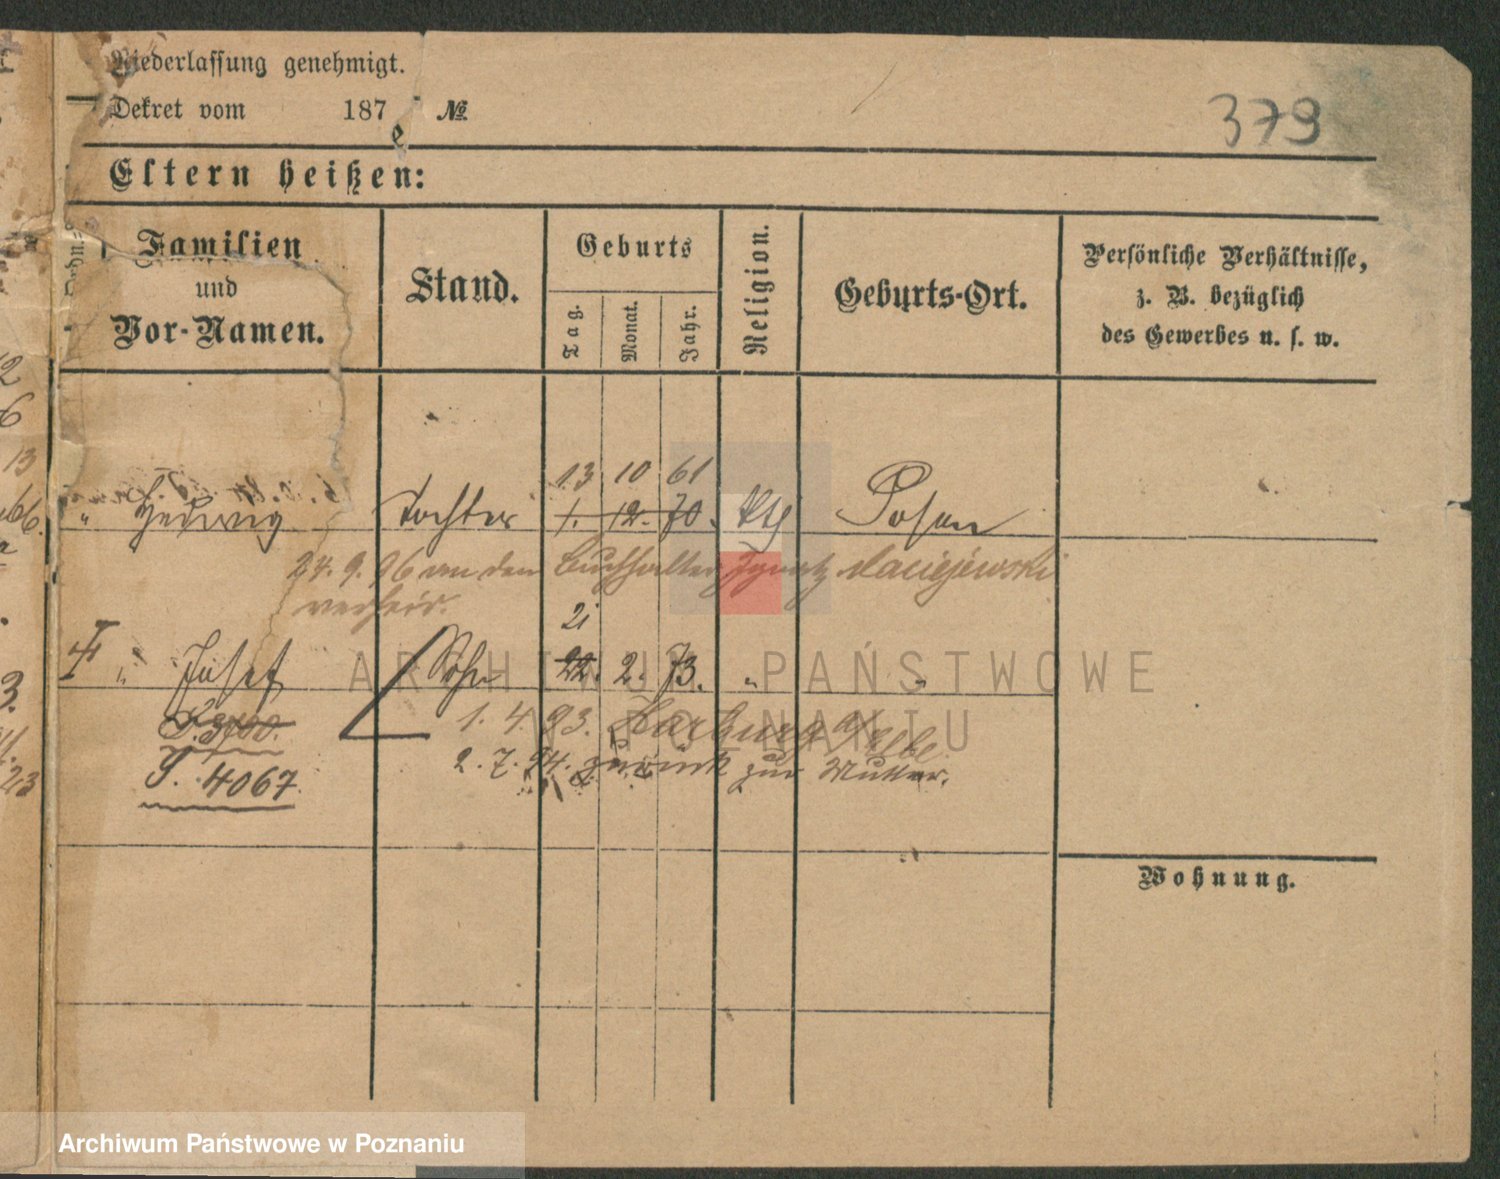 Niederlassung genehmigt.
Dekret vom 187 №
379
Eltern heißen:
Familien
und
Vor-Namen.
Stand.
Geburts
Tag.
Monat.
Jahr.
Religion.
Geburts-Ort.
Persönliche Verhältnisse,
z. B. bezüglich
des Gewerbes u. s. w.
13 10 61
" Hedwig Tochter 1. 12. 70. kth Posen
24. 9. 96 an den Buchhalter Ignatz Maciejewski
verheir.
21
" Josef Sohn 22. 2. 73. " "
1. 4. 93. Harburg a/Elbe
2. 7. 94. zurück zur Mutter.
S. 4067.
Wohnung.
ARCHIWUM PAŃSTWOWE
W POZNANIU
Archiwum Państwowe w Poznaniu